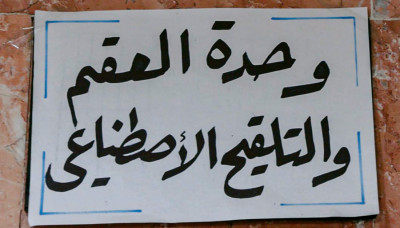 وحدة العقم
والتلقيح الأصطناعي